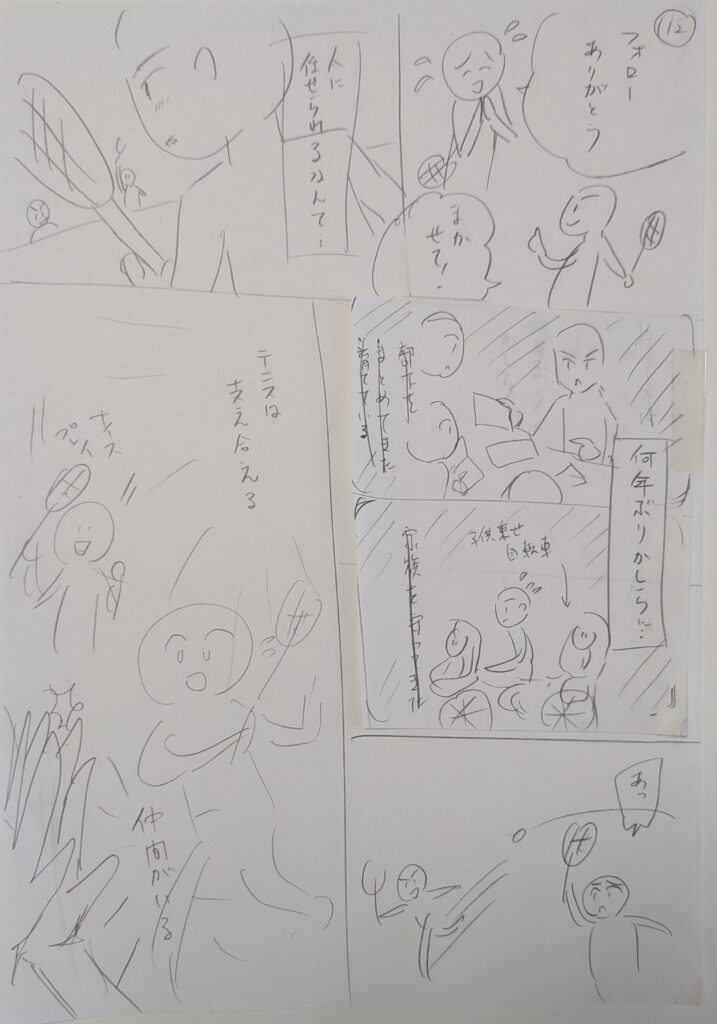 12
フォロー
ありがとう
まかせて!
人に
任せられるなんて…
何年ぶりかしら…
部下を
まとめてきた
育てている
子供乗せ
自転車
家族を守ってきた
あっ
テニスは
支え合える
ナイス
プレイ
仲間がいる